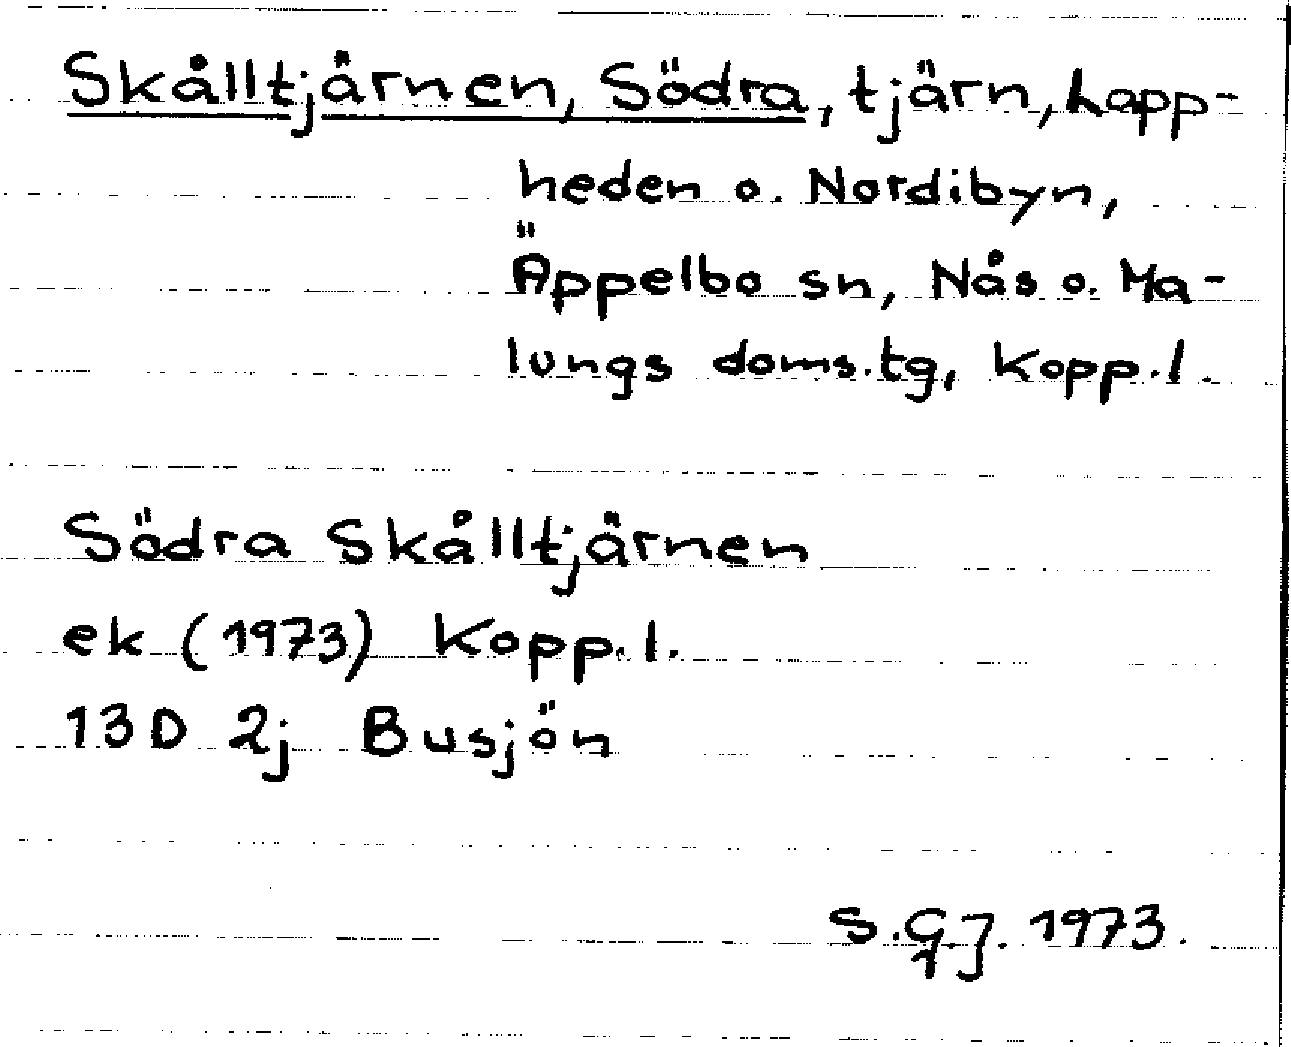 Skålltjärnen, Södra, tjärn, Lapp-
heden o. Nordibyn,
Äppelbo sn, Nås o. Ma-
lungs doms.tg, Kopp.l.
Södra Skålltjärnen
ek (1973) Kopp.l.
13D 2j Busjön
S.G.J. 1973.